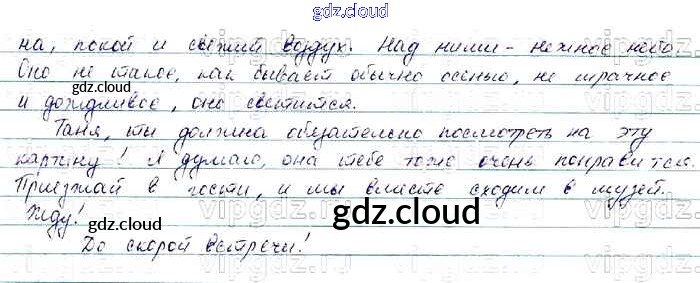 gdz.cloud
на, покой и свежий воздух. Над ними - нежное небо.
Оно не такое, как бывает обычно осенью, не мрачное
и дождливое, оно светится.
gdz.cloud
Таня, ты должна обязательно посмотреть на эту
картину! Я думаю, она тебе тоже очень понравится.
Приезжай в гости, и мы вместе сходим в музей.
Жду!
gdz.cloud
gdz.cloud
До скорой встречи!